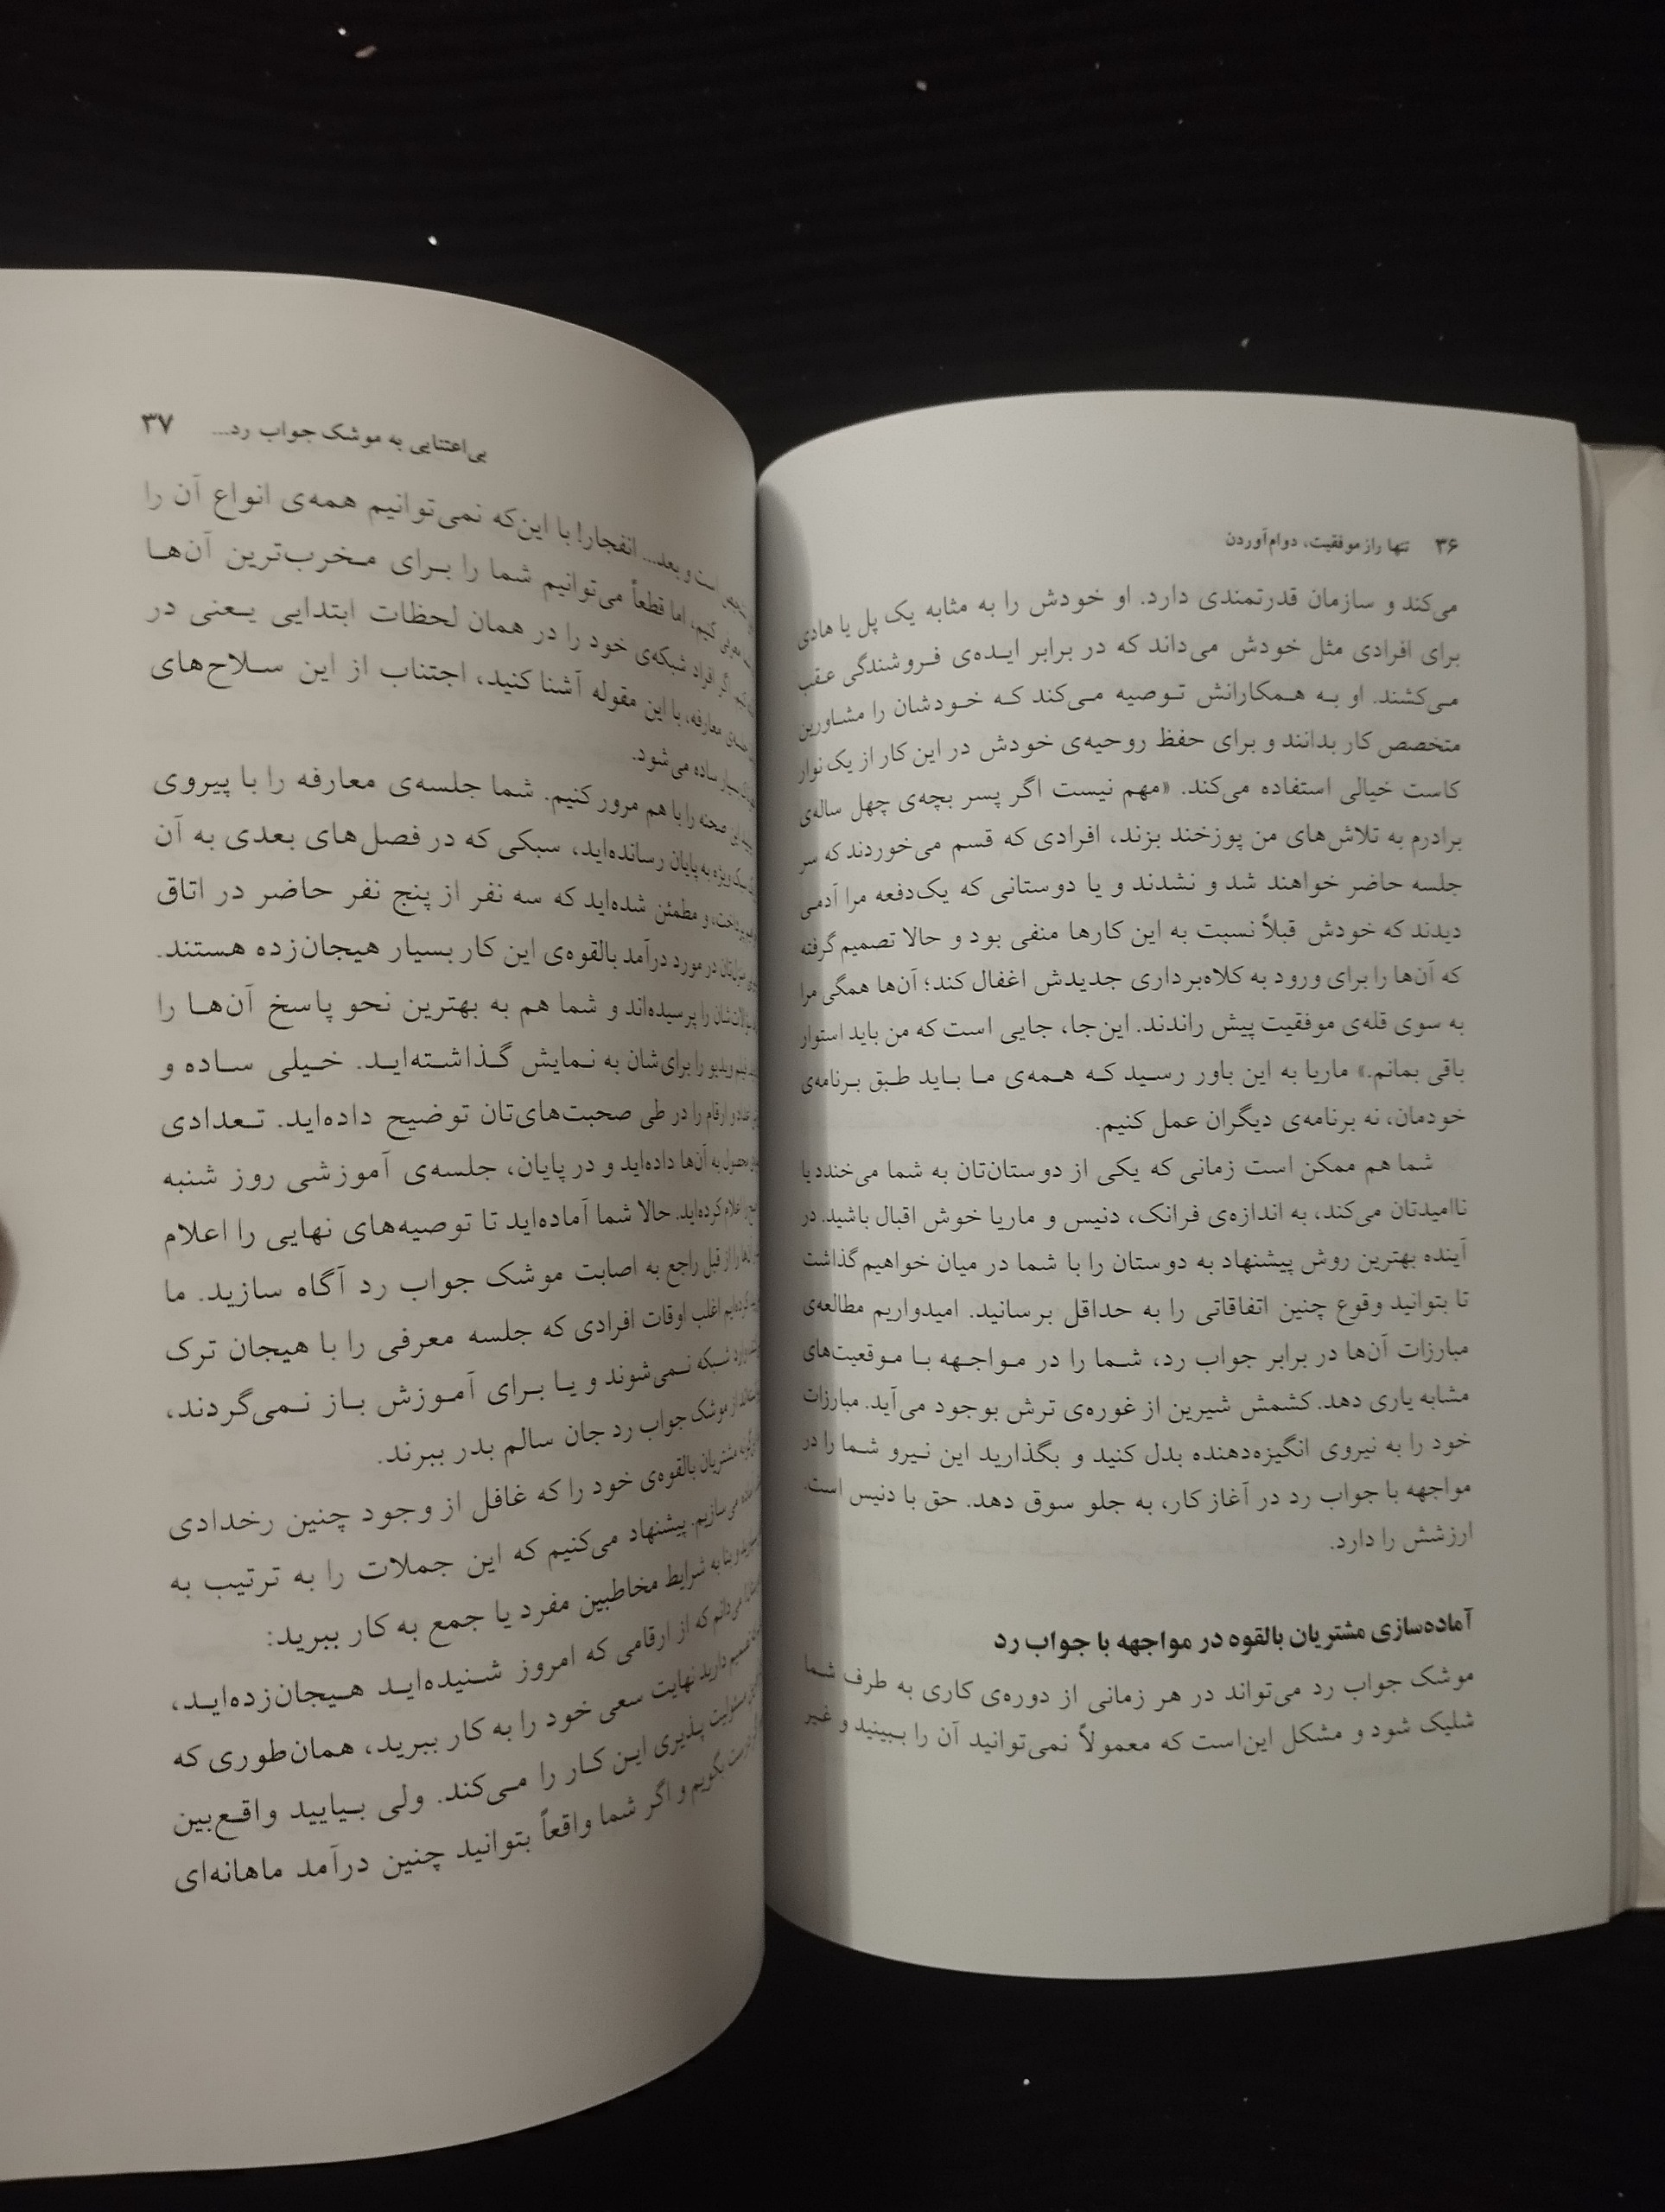 ۳۶ تنها راز موفقیت، دوام‌آوردن
می‌کند و سازمان قدرتمندی دارد. او خودش را به مثابه یک پل یا هادی
برای افرادی مثل خودش می‌داند که در برابر ایده‌ی فروشندگی عقب
می‌کشند. او به همکارانش توصیه می‌کند که خودشان را مشاورین
متخصص کار بدانند و برای حفظ روحیه‌ی خودش در این کار از یک نوار
کاست خیالی استفاده می‌کند. «مهم نیست اگر پسر بچه‌ی چهل ساله‌ی
برادرم به تلاش‌های من پوزخند بزند، افرادی که قسم می‌خوردند که سر
جلسه حاضر خواهند شد و نشدند و یا دوستانی که یک‌دفعه مرا آدمی
دیدند که خودش قبلاً نسبت به این کارها منفی بود و حالا تصمیم گرفته
که آن‌ها را برای ورود به کلاه‌برداری جدیدش اغفال کند؛ آن‌ها همگی مرا
به سوی قله‌ی موفقیت پیش راندند. این‌جا، جایی است که من باید استوار
باقی بمانم.» ماریا به این باور رسید که همه‌ی ما باید طبق برنامه‌ی
خودمان، نه برنامه‌ی دیگران عمل کنیم.
شما هم ممکن است زمانی که یکی از دوستان‌تان به شما می‌خندد یا
ناامیدتان می‌کند، به اندازه‌ی فرانک، دنیس و ماریا خوش اقبال باشید. در
آینده بهترین روش پیشنهاد به دوستان را با شما در میان خواهیم گذاشت
تا بتوانید وقوع چنین اتفاقاتی را به حداقل برسانید. امیدواریم مطالعه‌ی
مبارزات آن‌ها در برابر جواب رد، شما را در مواجهه با موقعیت‌های
مشابه یاری دهد. کشمش شیرین از غوره‌ی ترش بوجود می‌آید. مبارزات
خود را به نیروی انگیزه‌دهنده بدل کنید و بگذارید این نیرو شما را در
مواجهه با جواب رد در آغاز کار، به جلو سوق دهد. حق با دنیس است.
ارزشش را دارد.
آماده‌سازی مشتریان بالقوه در مواجهه با جواب رد
موشک جواب رد می‌تواند در هر زمانی از دوره‌ی کاری به طرف شما
شلیک شود و مشکل این‌است که معمولاً نمی‌توانید آن را ببینید و غیر
بی‌اعتنایی به موشک جواب رد... ۳۷
است و بعد... انفجار! با این‌که نمی‌توانیم همه‌ی انواع آن را
کنیم، اما قطعاً می‌توانیم شما را برای مخرب‌ترین آن‌ها
اگر افراد شبکه‌ی خود را در همان لحظات ابتدایی یعنی در
معارفه، با این مقوله آشنا کنید، اجتناب از این سلاح‌های
بسیار ساده می‌شود.
این صحنه را با هم مرور کنیم. شما جلسه‌ی معارفه را با پیروی
سبک ویژه به پایان رسانده‌اید، سبکی که در فصل‌های بعدی به آن
و مطمئن شده‌اید که سه نفر از پنج نفر حاضر در اتاق
در مورد درآمد بالقوه‌ی این کار بسیار هیجان‌زده هستند.
را پرسیده‌اند و شما هم به بهترین نحو پاسخ آن‌ها را
فیلم ویدیو را برای‌شان به نمایش گذاشته‌اید. خیلی ساده و
و ارقام را در طی صحبت‌های‌تان توضیح داده‌اید. تعدادی
محصول به آن‌ها داده‌اید و در پایان، جلسه‌ی آموزشی روز شنبه
اعلام کرده‌اید. حالا شما آماده‌اید تا توصیه‌های نهایی را اعلام
را از قبل راجع به اصابت موشک جواب رد آگاه سازید. ما
اغلب اوقات افرادی که جلسه معرفی را با هیجان ترک
شبکه نمی‌شوند و یا برای آموزش باز نمی‌گردند،
از موشک جواب رد جان سالم بدر ببرند.
مشتریان بالقوه‌ی خود را که غافل از وجود چنین رخدادی
می‌سازیم. پیشنهاد می‌کنیم که این جملات را به ترتیب به
و بنا به شرایط مخاطبین مفرد یا جمع به کار ببرید:
می‌دانم که از ارقامی که امروز شنیده‌اید هیجان‌زده‌اید،
تصمیم دارید نهایت سعی خود را به کار ببرید، همان‌طوری که
مسئولیت پذیری این کار را می‌کند. ولی بیایید واقع‌بین
بگویم و اگر شما واقعاً بتوانید چنین درآمد ماهانه‌ای